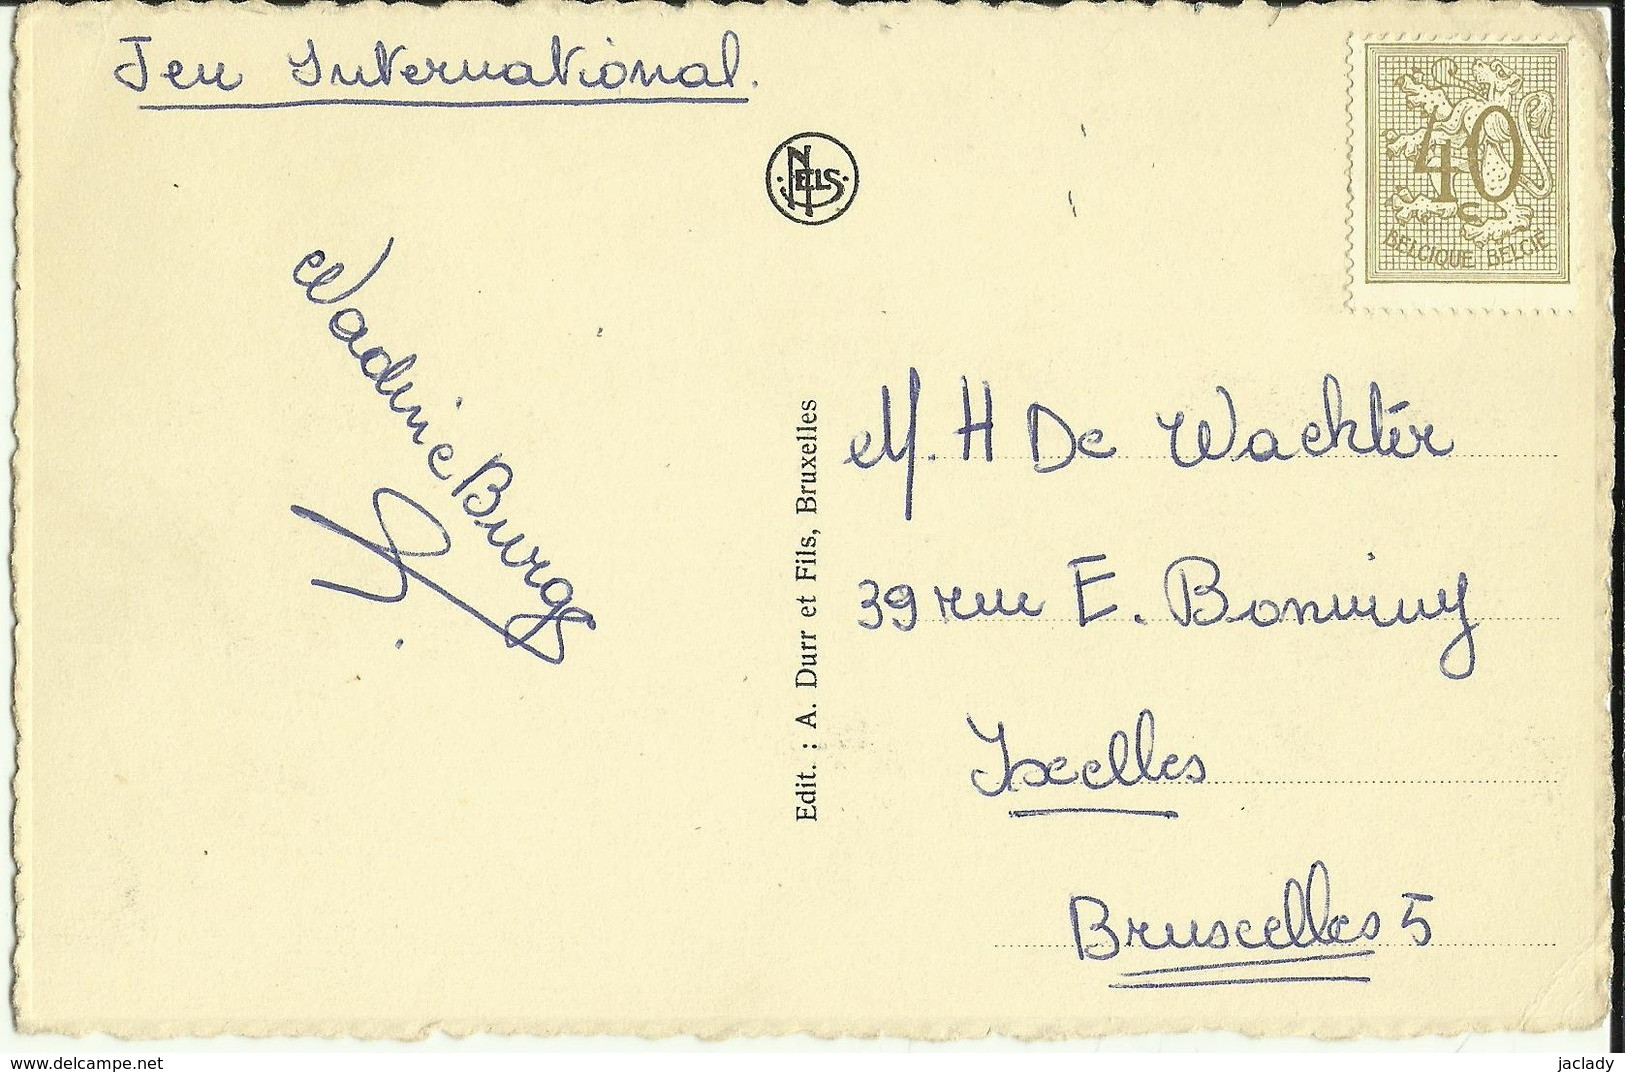 Jeu International.
NELS
40
BELGIQUE BELGIË
Burge
Edit. : A. Durr et Fils, Bruxelles
M. H De Wachter
39 rue E. Bonminy
Ixelles
Bruxelles 5
www.delcampe.net
jaclady